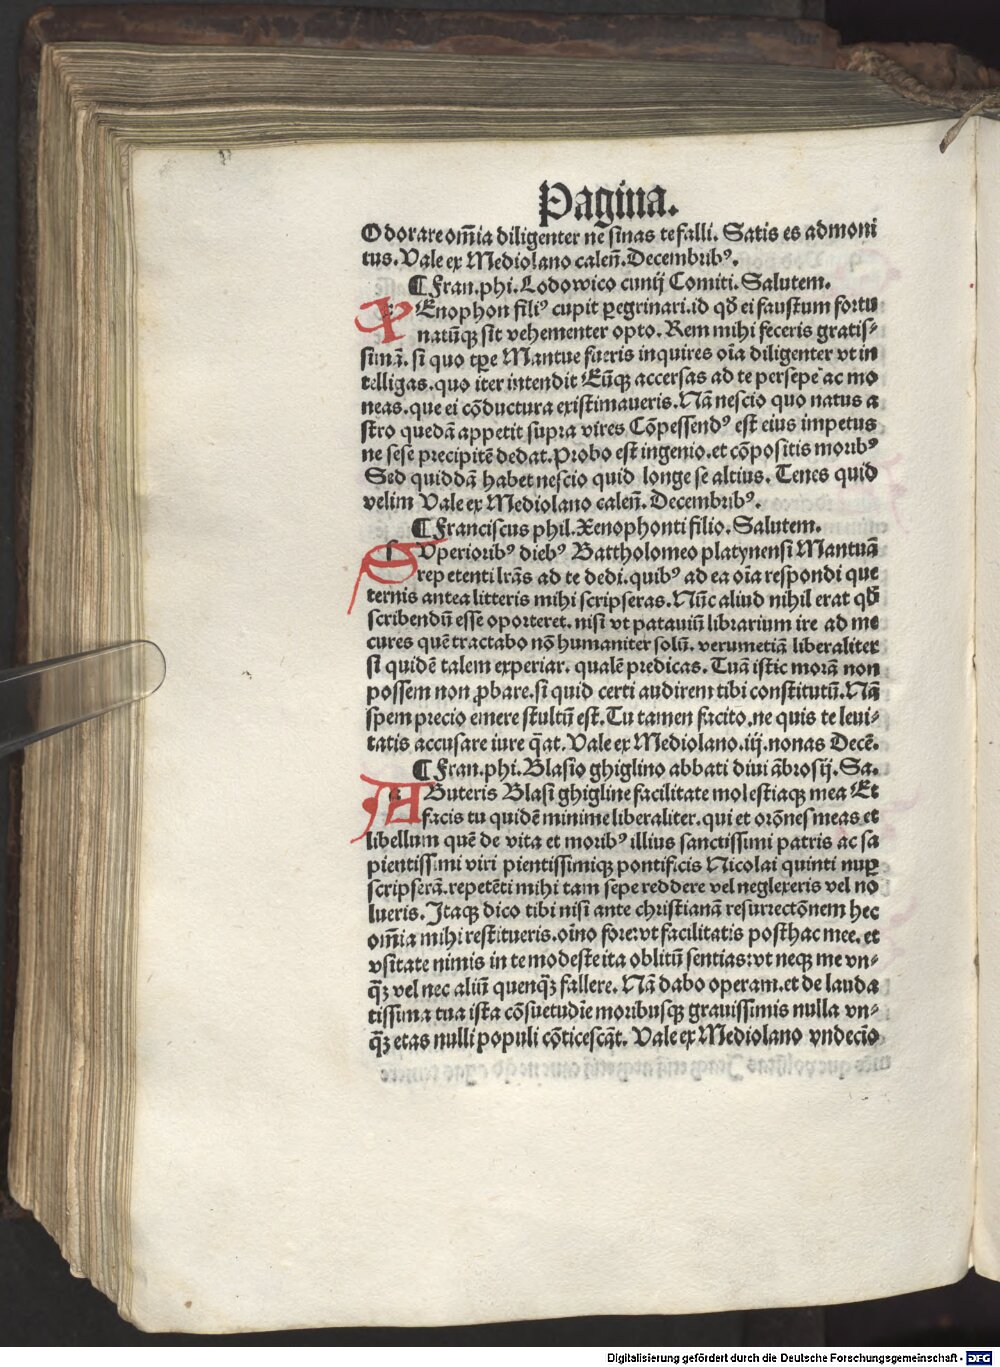 Pagina.
Odorare om̄ia diligenter ne sinas te falli. Satis es admoni
tus. Vale ex Mediolano caleñ. Decembribꝰ.
¶ Fran. phi. Lodowico cunij Comiti. Salutem.
XEnophon filiꝰ cupit ꝑegrinari. id qđ ei faustum fortu
natūqꝫ sit vehementer opto. Rem mihi feceris gratis⸗
simā. si quo tꝑe Mantue fueris inquires oīa diligenter vt in
telligas. quo iter intendit Eūqꝫ accersas ad te persepe ac mo
neas. que ei cōductura existimaueris. Nā nescio quo natus a
stro quedā appetit supra vires Cōpessendꝰ est eius impetus
ne sese precipitē dedat. Probo est ingenio. et cōpositis moribꝰ
Sed quiddā habet nescio quid longe se altius. Tenes quid
velim Vale ex Mediolano caleñ. Decembribꝰ.
¶ Franciscus phil. Xenophonti filio. Salutem.
SVperioribꝰ diebꝰ Battholomeo platynensi Mantuā
repetenti lr̄as ad te dedi. quibꝰ ad ea oīa respondi que
ternis antea litteris mihi scripseras. Nūc aliud nihil erat qđ
scribendū esse oporteret. nisi vt patauiū librarium ire ad me
cures quē tractabo nō humaniter solū. verumetiā liberaliter
si quidē talem experiar. qualē predicas. Tuā istic morā non
possem non ꝓbare. si quid certi audirem tibi constitutū. Nā
spem precio emere stultū est. Tu tamen facito. ne quis te leui⸗
tatis accusare iure q̄at. Vale ex Mediolano. iij. nonas Decē.
¶ Fran. phi. Blasio ghiglino abbati diui ābrosij. Sa.
AButeris Blasi ghigline facilitate molestiaqꝫ mea Et
facis tu quidē minime liberaliter. qui et orōnes meas et
libellum quē de vita et moribꝰ illius sanctissimi patris ac sa
pientissimi viri pientissimiqꝫ pontificis Nicolai quinti nuꝑ
scripserā. repetēti mihi tam sepe reddere vel neglexeris vel no
lueris. Itaqꝫ dico tibi nisi ante christianā resurrectōnem hec
om̄ia mihi restitueris. oīno fore: vt facilitatis posthac mee. et
vsitate nimis in te modeste ita oblitū sentias: vt neqꝫ me vn⸗
q̄ꝫ vel nec aliū quenq̄ꝫ fallere. Nā dabo operam. et de lauda
tissima tua ista cōsuetudīe moribusqꝫ grauissimis nulla vn⸗
q̄ꝫ etas nulli populi cōticescāt. Vale ex Mediolano vndecīo
Digitalisierung gefördert durch die Deutsche Forschungsgemeinschaft - DFG